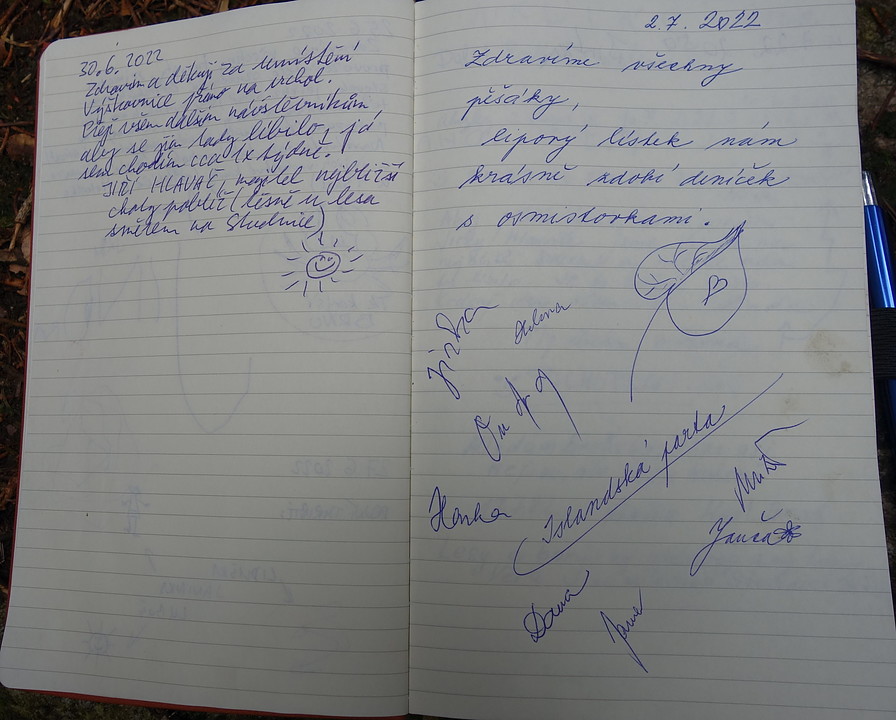 30.6.2022
Zdravím a děkuji za umístění
Výškovnice přímo na vrchol.
Přeji všem dalším návštěvníkům
aby se jim tady líbilo, já
sem chodím cca 1x týdně.
JIŘÍ HLAVÁČ, majitel nejbližší
chaty poblíž (těsně u lesa
směrem na Studnice)
2.7. 2022
Zdravíme všechny
pěšáky,
lipový lístek nám
krásně zdobí deníček
s osmistovkami.
Jiřka
Helena
Islandská parta
Hanka
Janča
Dana
Jane